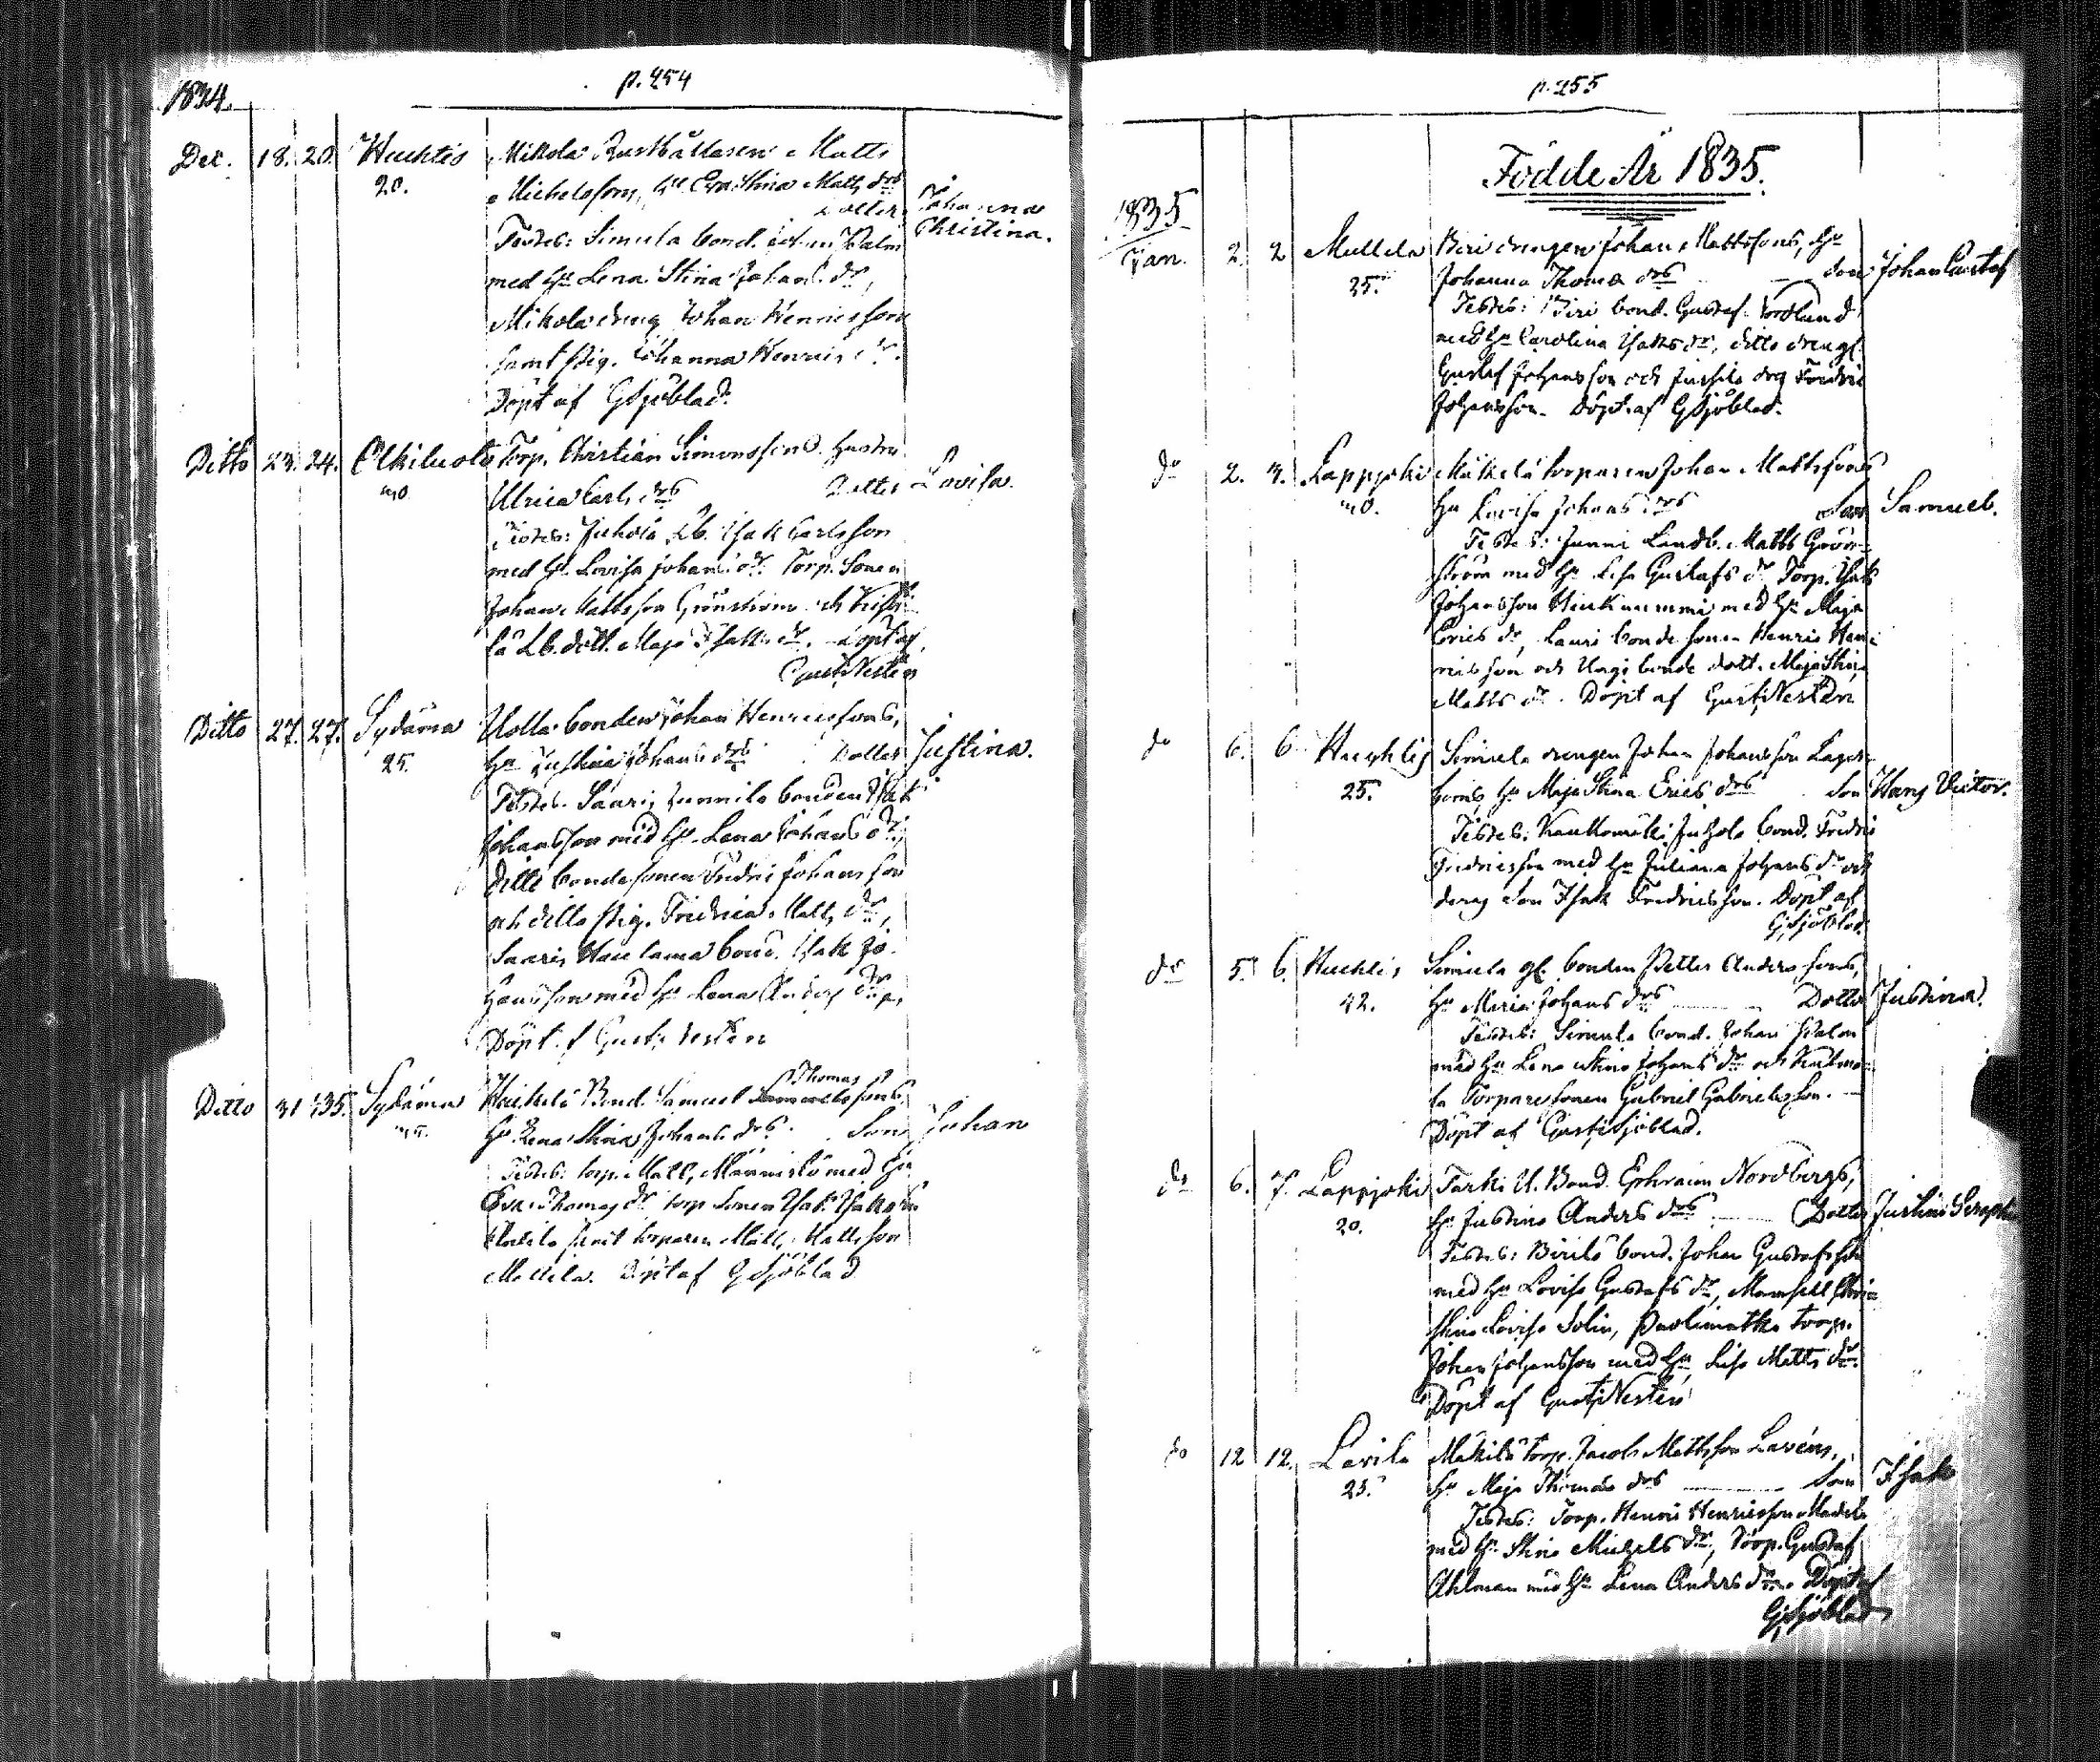 p. 254
1834.
Dec. 18. 20. Huchtis Mikola Rusthållaren Matts
20. Michelssons, hu Eva Stina Matts drs
Dotter Johanna
Christina.
Testes: Simula bond. Johan Palm
med hu Lena Stina Johans dr,
Mikola dreng Johan Henricsson
samt pig. Johanna Henrics dr.
Döpt af GSjöblad.
Ditto 23. 24. Olkiluoto Torp. Christian Simonssons hustru
Ulrica Carls drs Dotter Lovisa.
Testes: Juhola Lb. Isak Carlsson
med hu Lovisa Johans dr Torp. Sonen
Johan Mattsson Grönström och
la Lb. dott. Maja Isaks dr. Döpt af
Gust: Nestén
Ditto 27. 27. Sydänma bonden Johan Henricssons,
25. hu Justina Johans drs Dotter Justina.
Testes. Saari Junnila bonden Isak
Johansson med hu Lena Johans dr;
ditto bonde sonen Fredric Johansson
och ditto pig. Fredrica Matts dr,
Saari bond. Isak Jo-
hansson med hu Lena Anders dr,
Döpt af Gust: Nestén
Ditto 31 Sydänma Bond. Samuel Thomas sons
hu Lena Stina Johans drs Son Johan
Testes: torp. Matts Männistö med hu
Eva Thomas dr torp sonen Isak Isaksson
samt torparen Matts Mattsson
Döpt af GSjöblad
p. 255
Födde År 1835.
1835
Jan. 2. 2 Mullila Biri drengen Johan Mattssons, hu
25. Johanna Thomæ drs Son Johan Gustaf
Testes: Biri bond. Gustaf Nordlund
med hu Carolina Isaks dr, ditto drengl.
Gustaf Johansson och Jussila drg Fredric
Johansson. Döpt af GSjöblad.
do 2. 3. Lappjoki Mäkelä torparen Johan Mattssons
hu Lovisa Johans drs Son Samuel.
Testes: Junni Landb. Matts Grön-
ström med hu Lisa Gustafs dr Torp. Isak
Johansson med hu Maja
Erics dr, Lauri bonde sonen Henric Hen-
ricsson och bonde dott. Maja Stina
Matts dr. Döpt af Gust: Nestén
do 6. 6 Huchtis Simula drengen Johan Johansson Lager-
25. hu Maja Stina Erics drs Son Hans Victor.
Testes: Kaukomäki Juhola bond. Fredric
Fredricsson med hu Juliana Johans dr och
deras Son Isak Fredricsson. Döpt af
GSjöblad.
do 5. 6. Huchtis Simula gl. bonden Petter Anderssons,
42. hu Maria Johans drs Dotter Justina.
Testes: Simula bond. Johan Palm
med hu Lena Stina Johans dr och
la Torpare sonen Gabriel Gabrielsson.
Döpt af Gust: Sjöblad.
do 6. 7. Lappjoki Tarki U. Bond. Ephraim Nordbergs,
20. hu Justina Anders drs Dotter Justina Seraph
Testes: Birilä bond. Johan Gustafsson
med hu Lovisa Gustafs dr, Mamsell
Stina Lovisa Solin, torp.
Johan Johansson med hu Lisa Matts dr.
Döpt af Gust: Nestén
do 12 12. Lavila Mäkilä torp. Jacob Mattsson Lavéns,
23. hu Maja Thomas drs Son Isak
Testes: Torp. Henric Henricsson
med hu Stina Michels dr, Torp. Gustaf
Ahlman med hu Lena Anders dr. Döpt af
GSjöblad